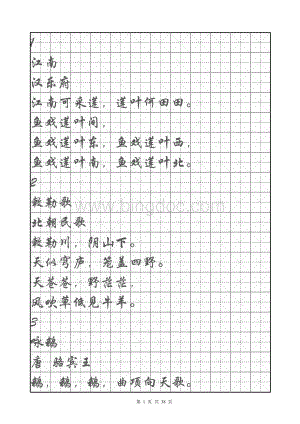 1
江南
汉乐府
江南可采莲，莲叶何田田。
鱼戏莲叶间，
鱼戏莲叶东，鱼戏莲叶西，
鱼戏莲叶南，鱼戏莲叶北。
2
敕勒歌
北朝民歌
敕勒川，阴山下。
天似穹庐，笼盖四野。
天苍苍，野茫茫，
风吹草低见牛羊。
3
咏鹅
唐 骆宾王
鹅，鹅，鹅，曲项向天歌。